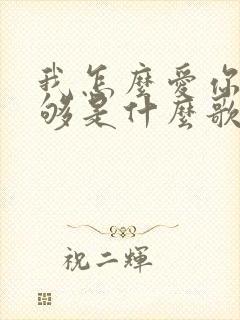 我怎麼愛你
够是什麼歌
祝二輝